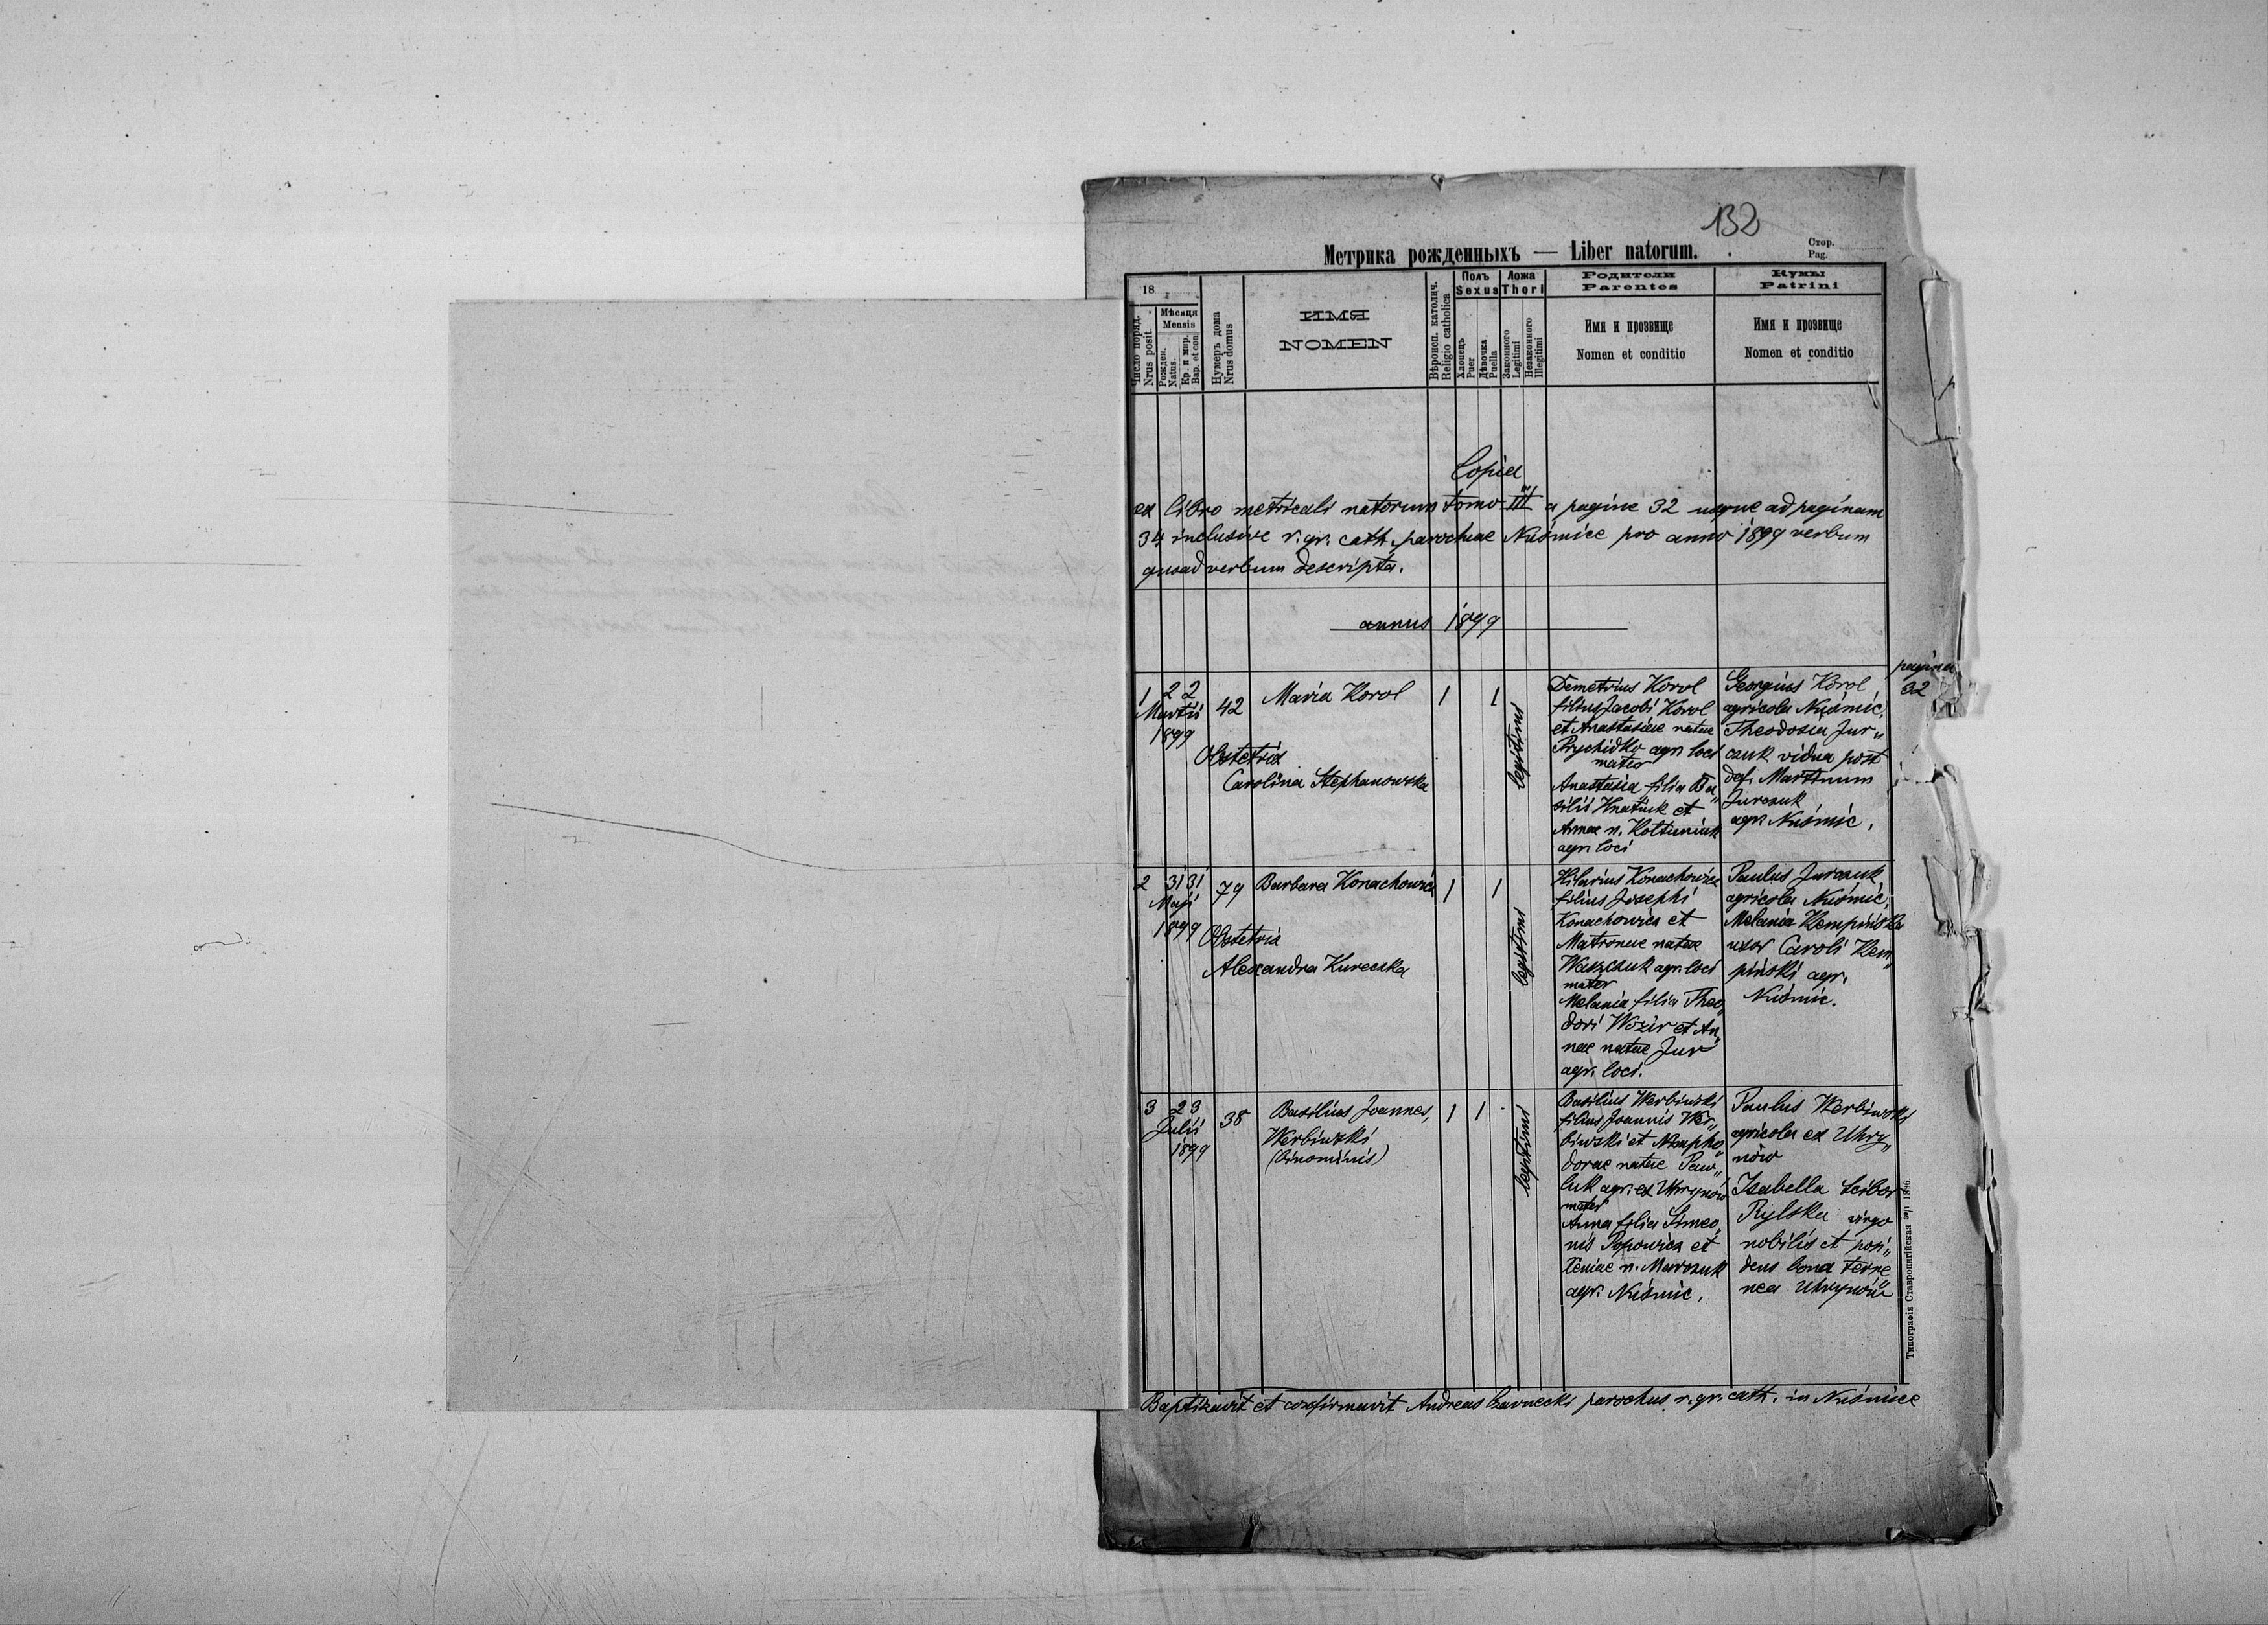 132
Метрика рожденныхъ — Liber natorum.
Стор.
Pag.
18
Число поряд.
Nrus posit.
Мѣсяця
Mensis
Рожден.
Natus.
Кр. и мир.
Bap. et con
Нумеръ дома
Nrus domus
ИМЯ
NOMEN
Вѣроисп. католич.
Religio catholica
Полъ
Sexus
Хлопецъ
Puer
Дѣвочка.
Puella
Ложа
Thori
Законного
Legitimi
Незаконного
Illegitimi
Родители
Parentes
Имя и прозвище
Nomen et conditio
Кумы
Patrini
Имя и прозвище
Nomen et conditio
Copia
ex libro metricali natorum tomo III a pagine 32 usque ad paginam
34 inclusive r. gr. cath. parochiae Nuśmice pro anno 1899 verbum
quoad verbum descripta.
annus 1899
pagina
32
1 2 2
Martii
1899
42
Maria Korol
Obstetrix
Carolina Stephanowska
1 1
legitimi
Demetrius Korol
filius Jacobi Korol
et Anastasiae natae
Prychidko agr. loci
mater
Anastasia filia Ba„
silii Hnatiuk et
Annae n. Kołtuniuk
agr. loci
Georgius Korol
agricola Nuśmic,
Theodosia Jur„
czuk vidua post
def. Martinum
Jurczuk
agr. Nuśmic.
2 31 31
Maji
1899
79
Barbara Konachowicz
Obstetrix
Alexandra Kurecska
1 1
legitimi
Hilarius Konachowicz
filius Josephi
Konachowicz et
Matronae natae
Waszczuk agr. loci
mater
Melania filia Theo„
dori Wozir et An„
nae natae Jur
agr. loci.
Paulus Jurczuk
agricola Nuśmic,
Melania Kempińska
uxor Caroli Kem„
piński agr.
Nuśmic.
3 2 3
Julii
1899
38
Basilius Joannes,
Werbiwski
(binominis)
1 1
legitimi
Basilius Werbiwski
filius Joannis Wer„
biwski et Nympho„
dorae natae Paw„
luk agr. ex Uhrynów
mater
Anna filia Simeo„
nis Popowicz et
Xeniae n. Marczuk
agr. Nuśmic.
Paulus Werbiwski
agricola ex Uhry„
nów
Izabella Scibor
Rylska virgo
nobilis et posi„
dens bona terre„
nea Uhrynów
Типографія Ставропигійская 1896.
Baptizavit et confirmavit Andreas Czarnecki parochus r. gr. cath. in Nuśmice